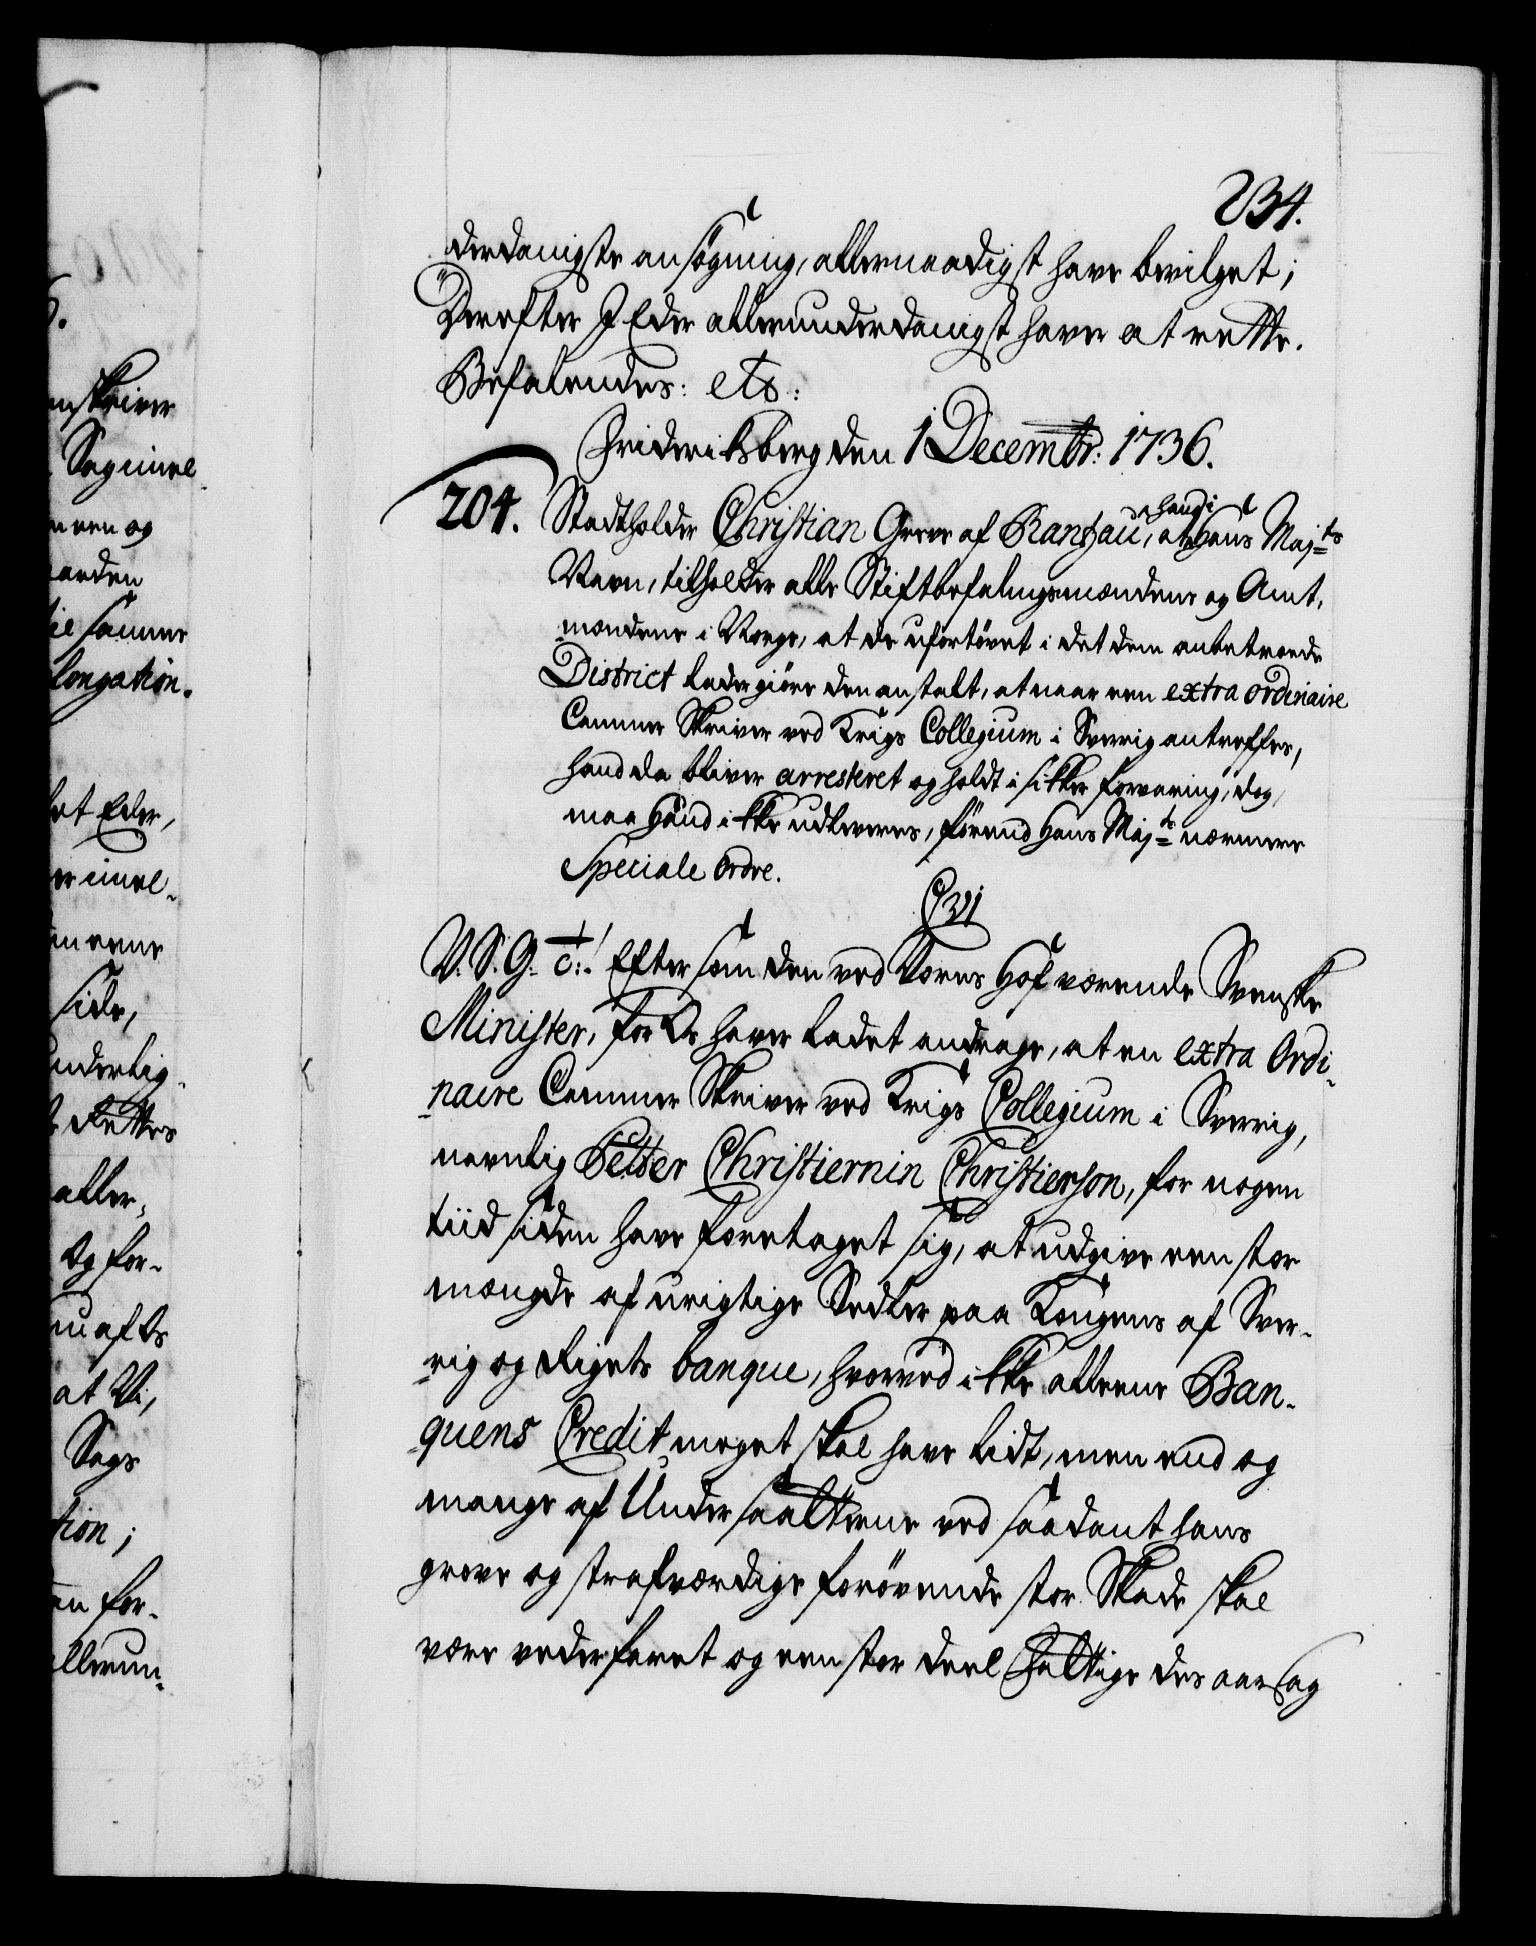 234.
derdanigste ansøgning, allernaadigst have bevilget;
Derefter I Eder allerunderdanigst haver at rette.
Befalendes: etc:
Friderichsberg den 1 Decembr: 1736.
204. Stadtholder Christian Greve af Rantzau, at hand i Hans Majts
Navn, tilholder alle Stiftbefalingsmændene og Amt,
mændene i Norge, at de ufortøvet i det dem anbetroede
District lader giøre den anstalt, at naar een extra ordinaire
Cammer Skriver ved Krigs Collegium i Sverrig antreffes,
hand da bliver arresteret og holdt i sikker forvaring, dog,
maa Hand ikke udleveres, førend Hans Majts nærmere
Speciale Ordre.
C VI
V. S. G. c:. Eftersom den ved Vores Hof værende Svenske
Minister, for Os haver ladet andrage, at en extra Ordi-
naire Cammer Skriver ved Krigs Collegium i Sverrig,
nernlig Petter Christiernin Christierson, for nogen
tiid siden have foretaget sig, at udgive een stor
mængde af urigtige Sedler paa Kongens af Sver-
rig og Rigets banque, hvorved ikke alleene Ban-
quens Credit meget skal have lidt, men end og
mange af Undersaatterne ved saadant hans
grove og strafværdige forøvende stor Skade skal
være vederfaret og een stor deel fattige des aarsag
nskriver
Sagiuel
n een og
aarden
samme
longation.
et Eder,
n eene
side,
underlig-
Rettes
aller-
Og for-
at Vi,
Sags
tion;
n for-
allerun-